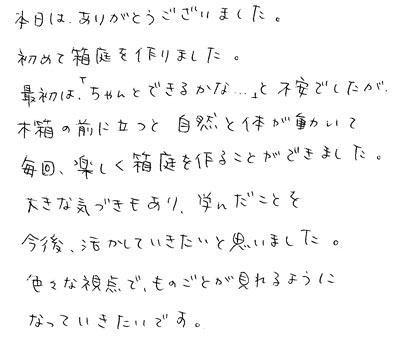 本日は、ありがとうございました。
初めて箱庭を作りました。
最初は、「ちゃんとできるかな…」と不安でしたが、
木箱の前に立つと自然と体が動いて
毎回、楽しく箱庭を作ることができました。
大きな気づきもあり、学んだことを
今後、活かしていきたいと思いました。
色々な視点で、ものごとが見れるように
なっていきたいです。